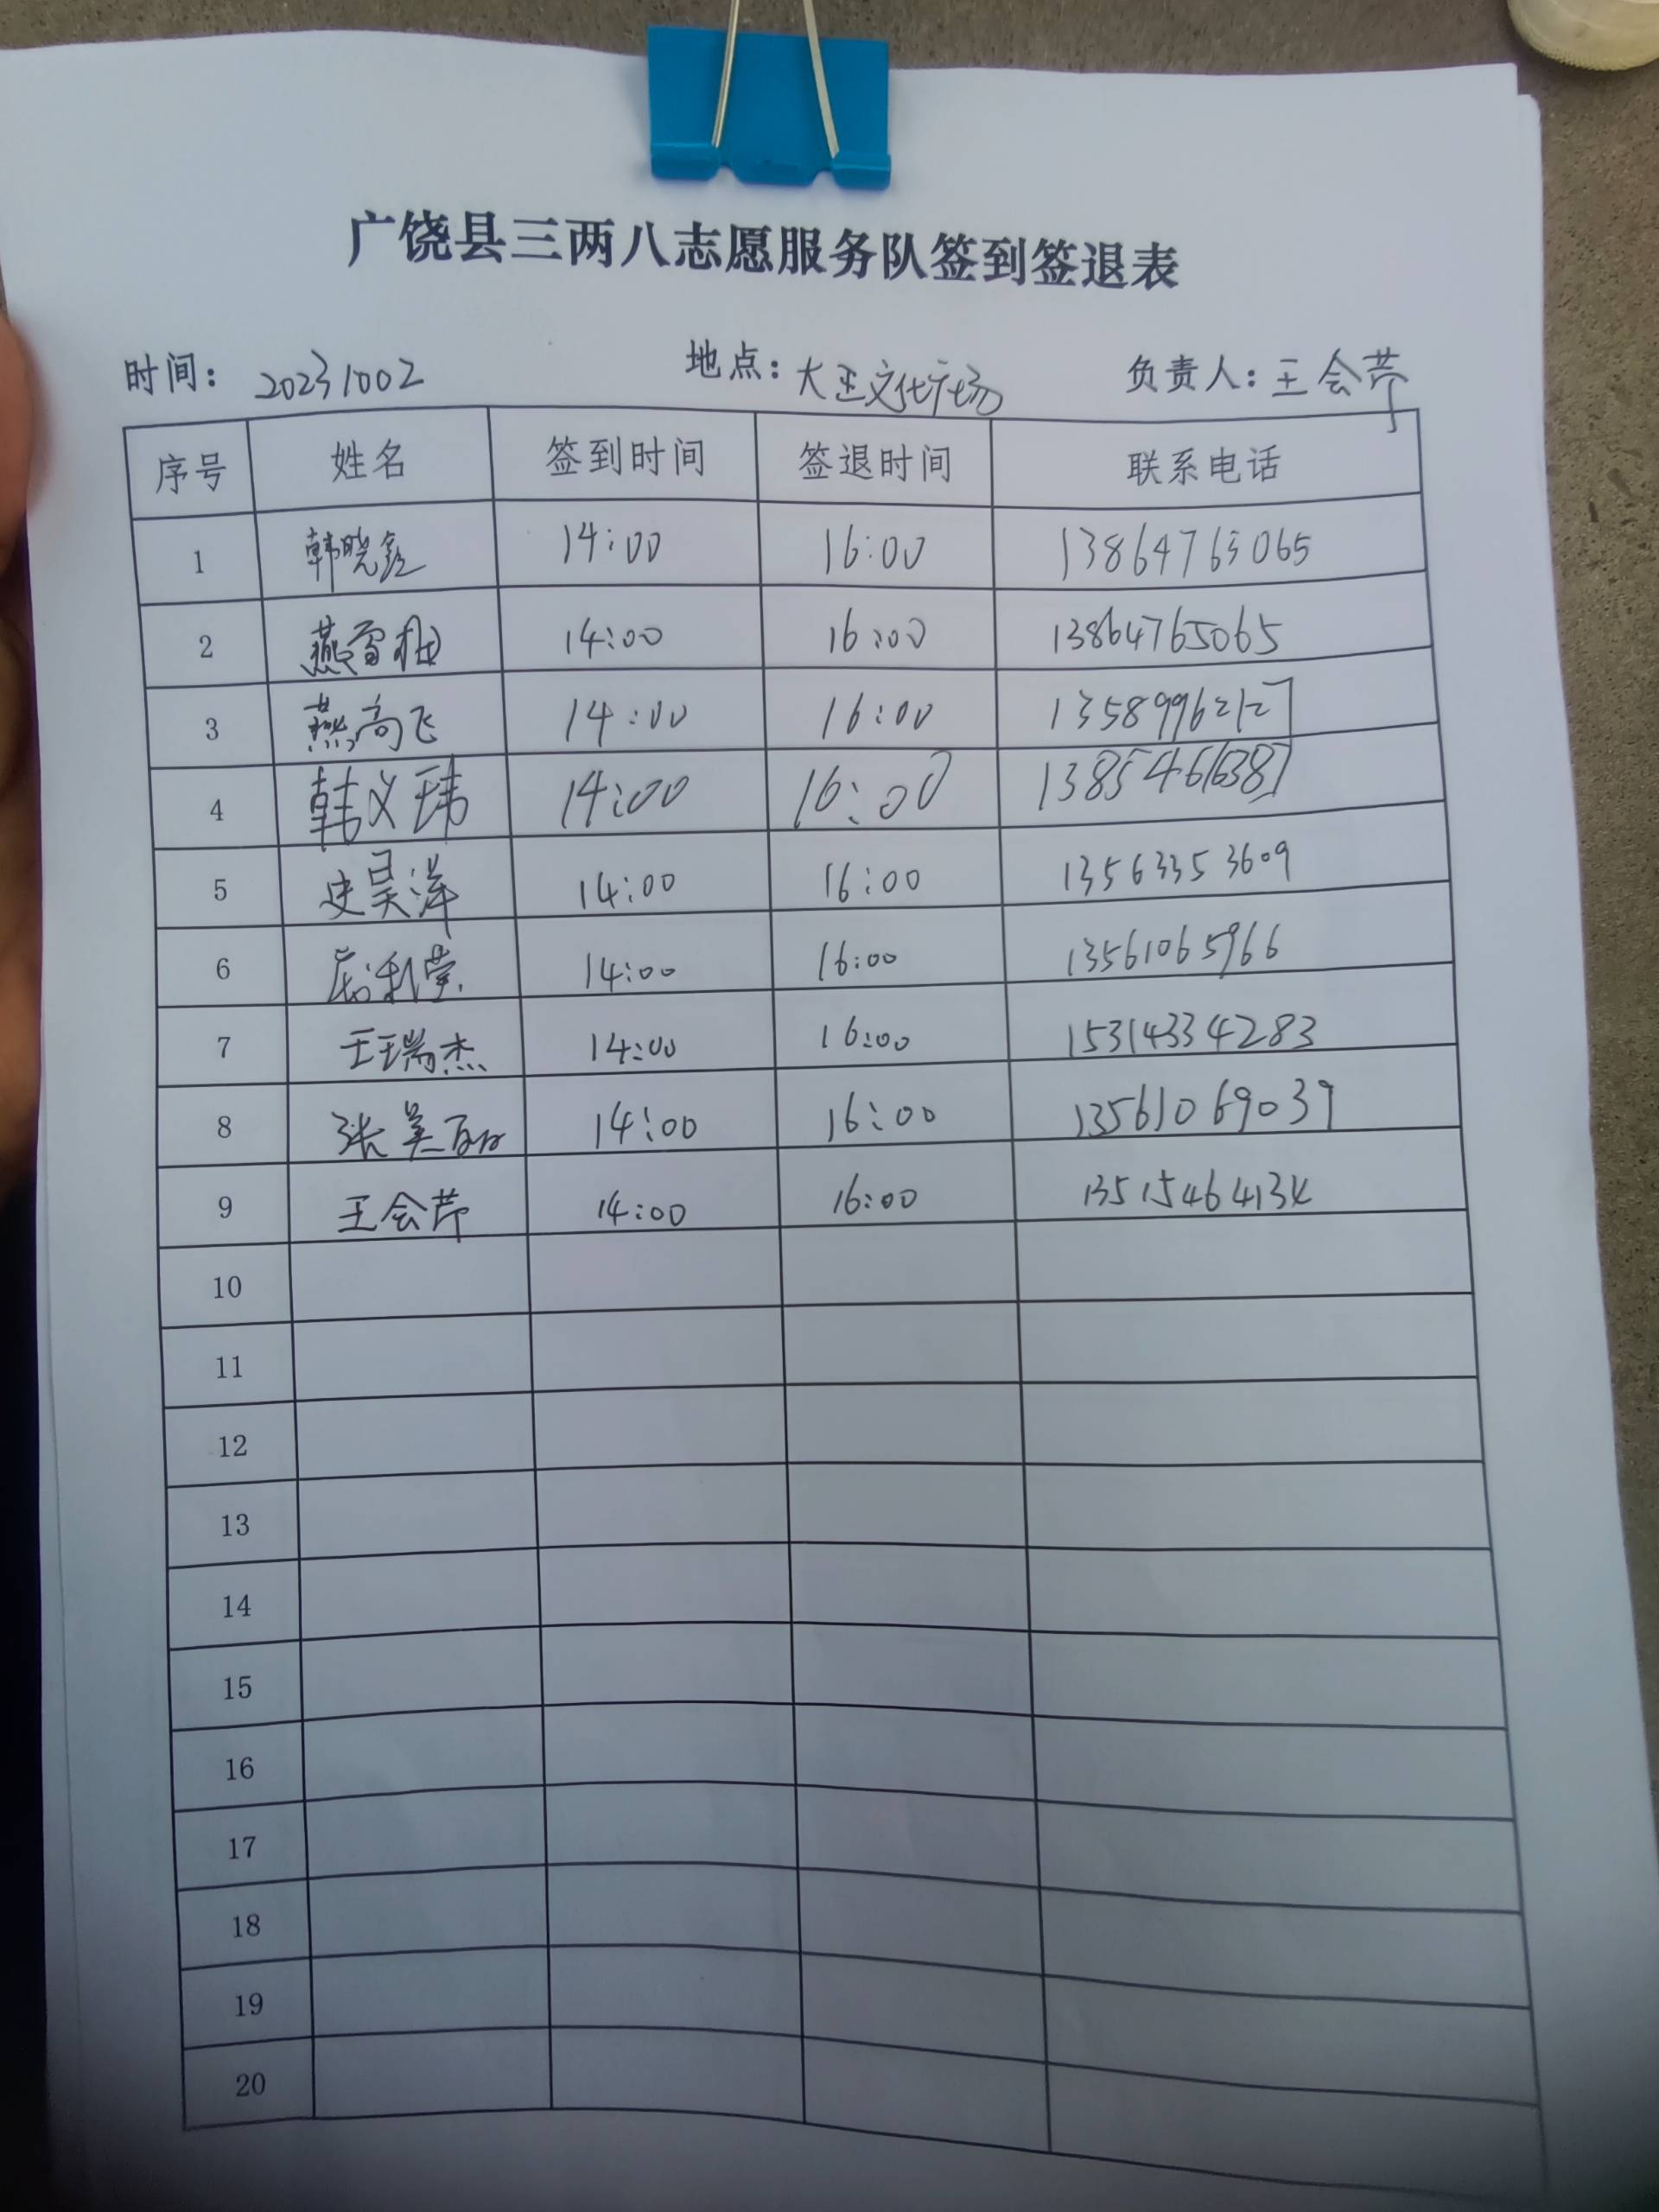 广饶县三两八志愿服务队签到签退表
时间: 20231002 地点: 大王文化广场 负责人: 王会芹
序号 姓名 签到时间 签退时间 联系电话
1 韩晓鑫 14:00 16:00 13864765065
2 14:00 16:00 13864765065
3 燕高飞 14:00 16:00 13589962127
4 韩义玮 14:00 16:00 13854661638
5 史昊洋 14:00 16:00 13563353609
6 14:00 16:00 13561065966
7 王瑞杰 14:00 16:00 15314334283
8 张美丽 14:00 16:00 13561069039
9 王会芹 14:00 16:00 13515464134
10
11
12
13
14
15
16
17
18
19
20